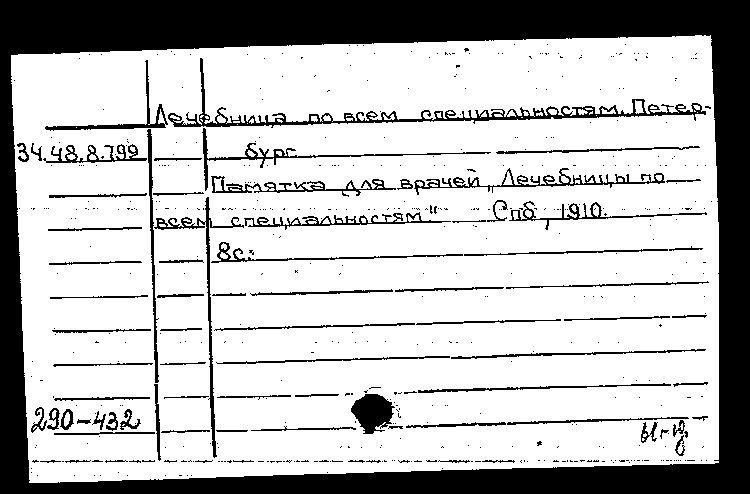 Лечебница по всем специальностям. Петер-
34.48.8.799 бург
Памятка для врачей „Лечебницы по
всем специальностям" Спб, 1910.
8с.
290-432